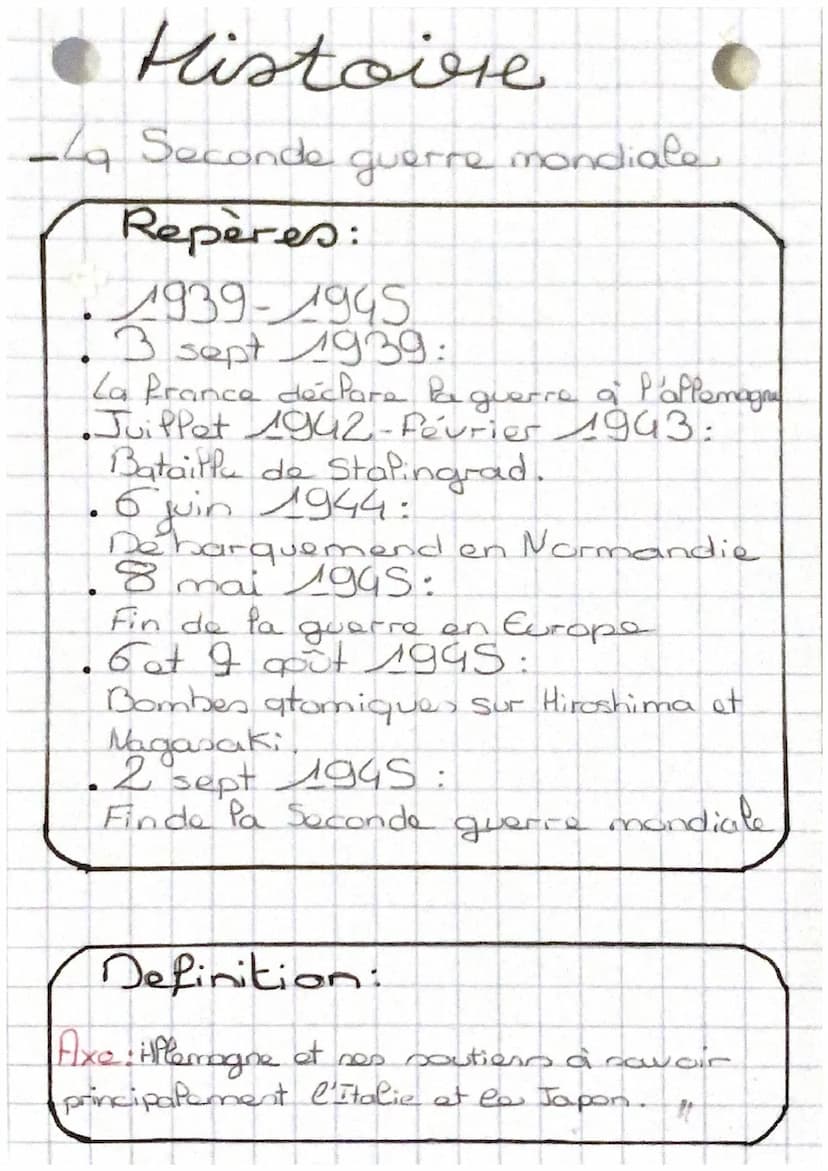 Histoire
- La Seconde guerre mondiale
Repères:
. 1939-1945
. 3 sept 1939:
La france déclare la guerre à l'allemagne
. Juillet 1942-février 1943:
Bataille de Stalingrad.
. 6 juin 1944:
Débarquemend en Normandie
. 8 mai 1945:
Fin de la guerre en Europe
. 6 et 9 août 1945:
Bombes atomiques sur Hiroshima et
Nagasaki.
. 2 sept 1945:
Fin de la Seconde guerre mondiale
Definition:
Axe: Allemagne et ses soutiens à savoir
principalement l'Italie et le Japon. "